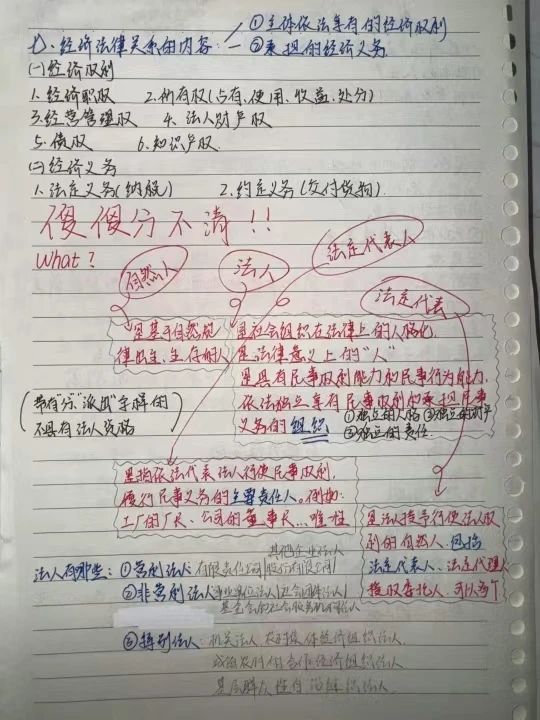 ①主体依法享有的经济权利
七、经济法律关系的内容:一 ②承担的经济义务
(一)经济权利
1.经济职权 2.所有权(占有、使用、收益、处分)
3.经营管理权 4.法人财产权
5.债权 6.知识产权
(二)经济义务
1.法定义务(纳税) 2.约定义务(交付货物)
傻傻分不清!!
What?
自然人 法人 法定代表人
法定代表
是基于自然规律出生、生存的人
是社会组织在法律上的人格化,
是法律意义上的"人"
是具有民事权利能力和民事行为能力,
依法独立享有民事权利和承担民事
义务的组织 ①独立的人格 ②独立的财产
③独立的责任
(带有"分""派出"字样的
不具有法人资格)
是指依法代表法人行使民事权利,
履行民事义务的主要责任人。例如:
工厂的厂长、公司的董事长…唯一性
是法人授予行使法人权
利的自然人,包括
法定代表人、法定代理人
授权委托人,可以多个
其他企业法人
法人有哪些:①营利法人:有限责任公司|股份有限公司|
②非营利法人:事业单位法人|社会团体法人|
基金会的社会服务机构法人
③特别法人:机关法人、农村集体经济组织法人
城镇农村的合作经济组织法人
基层群众性自治组织法人